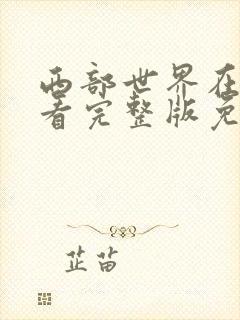 西部世界在
看完整版免
芷苗